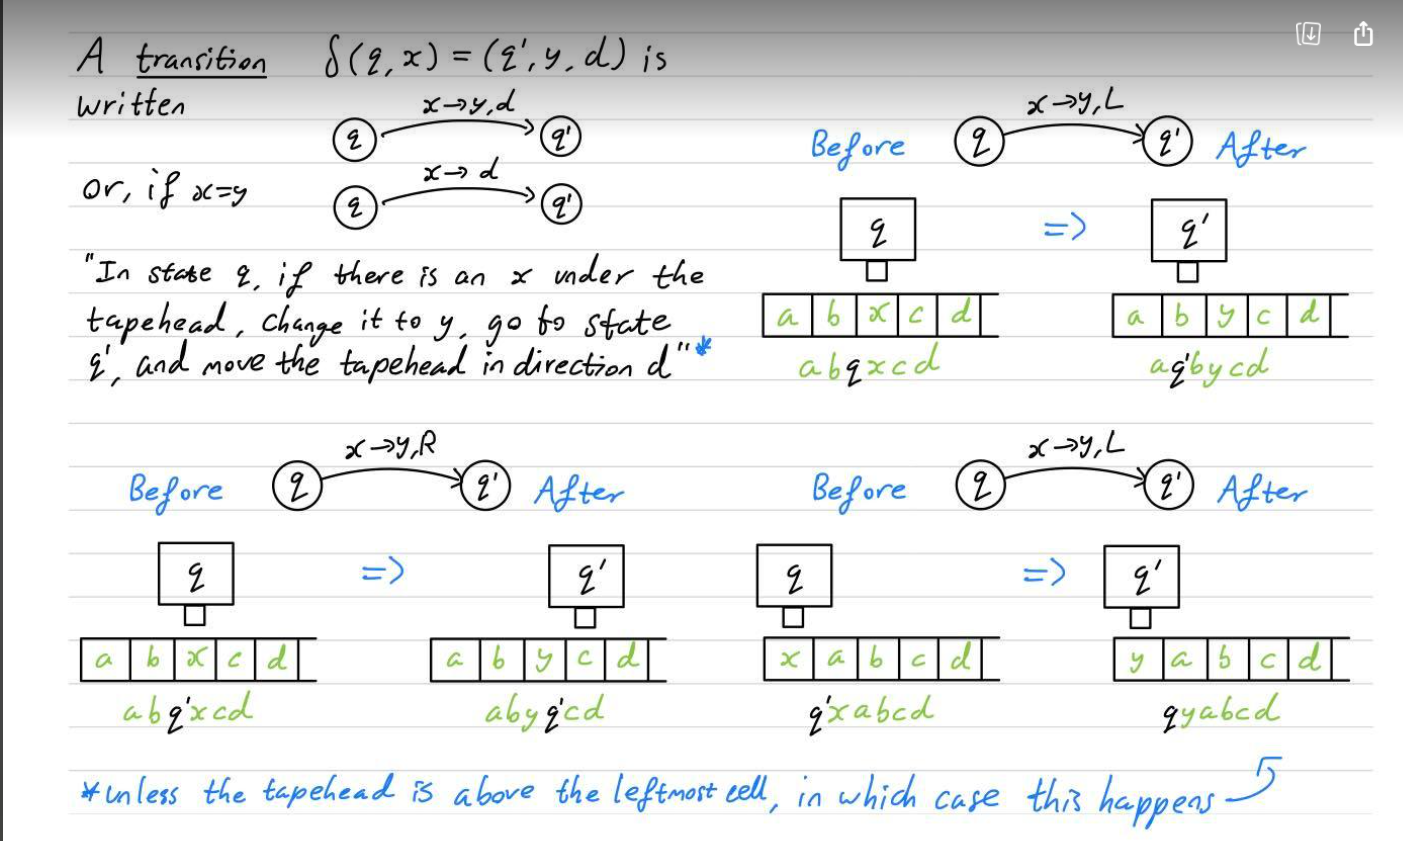 A transition δ(q,x) = (q',y,d) is
written
x→y,d
q q'
or, if x=y
x→ d
q q'
"In state q, if there is an x under the
tapehead, change it to y, go to state
q', and move the tapehead in direction d"*
x→y,L
Before q q' After
q => q'
a b x c d a b y c d
abqxcd aq'bycd
x→y,R
Before q q' After
q => q'
a b x c d a b y c d
abq'xcd abyq'cd
x→y,L
Before q q' After
q => q'
x a b c d y a b c d
q'xabcd qyabcd
*unless the tapehead is above the leftmost cell, in which case this happens